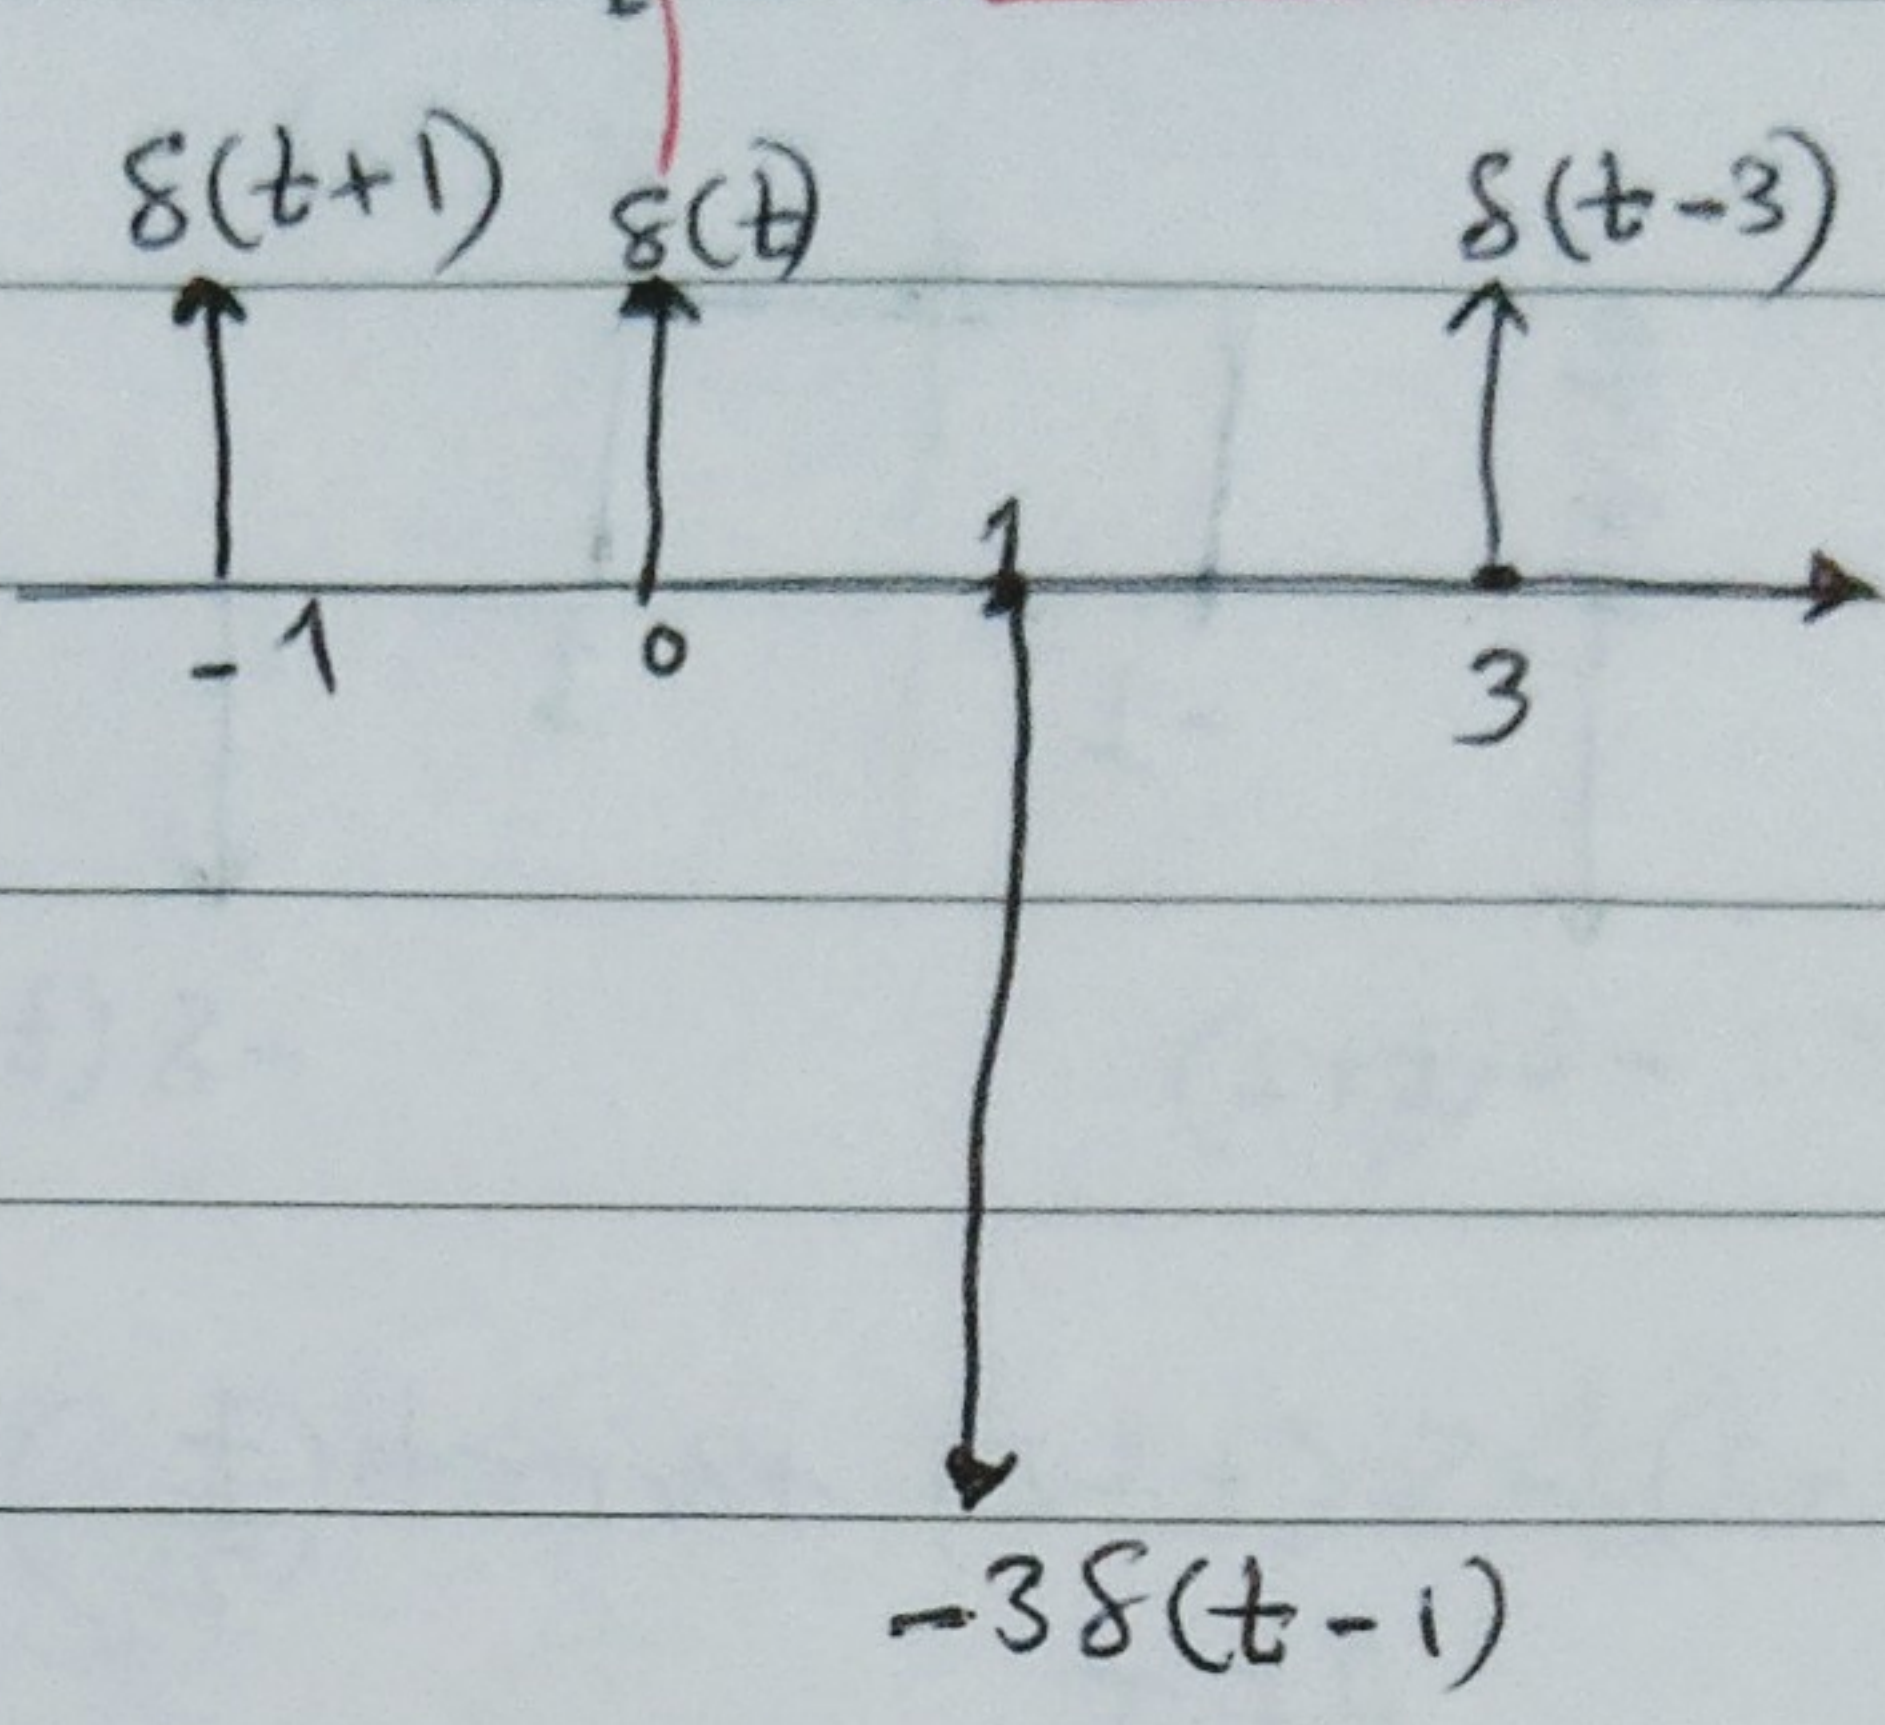 δ(t+1) δ(t) δ(t-3)
1
-1 0 3
-3δ(t-1)